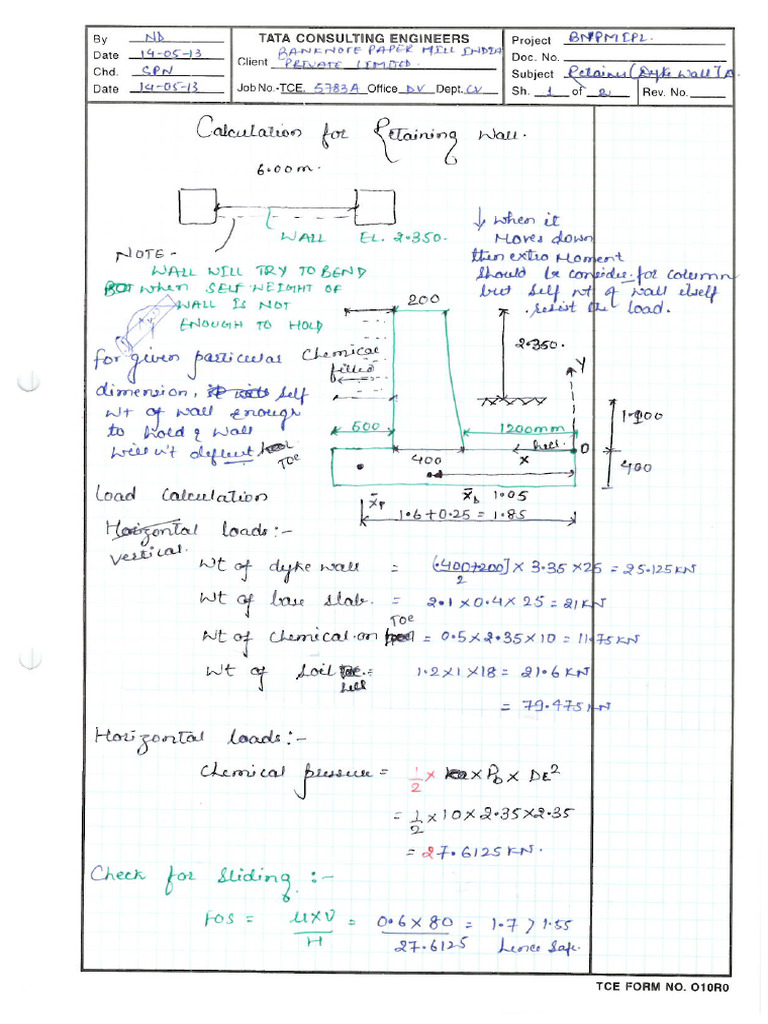 By ND
Date 14-05-13
Chd. SPN
Date 14-05-13
TATA CONSULTING ENGINEERS
Client BANKNOTE PAPER MILL INDIA
PRIVATE LIMITED.
Job No.-TCE. 5783A Office DV Dept. CV
Project BNPMIPL.
Doc. No.
Subject Retainer (Dyke Wall)
Sh. 1 of 2 Rev. No.
Calculation for Retaining Wall.
6.00m.
WALL EL. 2.350.
NOTE -
WALL WILL TRY TO BEND
when SELF WEIGHT OF
WALL IS NOT
ENOUGH TO HOLD
↓ when it
Moves down
then extra Moment
should be consider for column
but self wt of wall itself
resist the load.
200
2.350.
Y
for given particular
dimension, self
wt of wall enough
to hold & wall
will n't deflect
Chemical
filled
TOE
500
1200mm
heel.
O
400
x
1.900
400
x̄p
x̄b 1.05
1.6+0.25 = 1.85
Load Calculation
Horizontal loads:-
vertical.
Wt of dyke wall = (.400+200)/2 x 3.35 x 25 = 25.125KN
Wt of base slab. = 2.1 x 0.4 x 25 = 21KN
Wt of chemical on TOE = 0.5 x 2.35 x 10 = 11.75KN
Wt of soil heel = 1.2 x 1 x 18 = 21.6 KN
= 79.475KN
Horizontal loads:-
Chemical pressure = 1/2 x x Po x DE²
= 1/2 x 10 x 2.35 x 2.35
= 27.6125 KN.
Check for Sliding :-
FOS = μXV/H = 0.6 x 80/27.6125 = 1.7 > 1.55
hence safe.
TCE FORM NO. O10R0